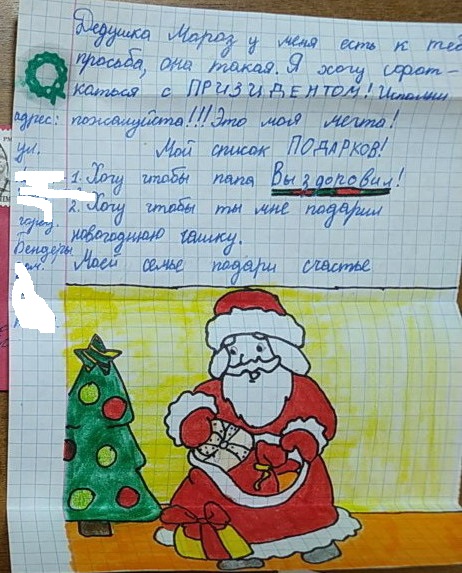 Дедушка Мароз у меня есть к теб
просьба, она такая. Я хочу сфот-
каться с ПРИЗИДЕНТОМ! Исполни
адрес: пожалуйста!!! Это моя мечта!
ул. Мой список ПОДАРКОВ!
1. Хочу чтобы папа Выздоровил!
2. Хочу чтобы ты мне подарил
город. новогоднюю чашку.
Бендеры
Моей семье подари счастье